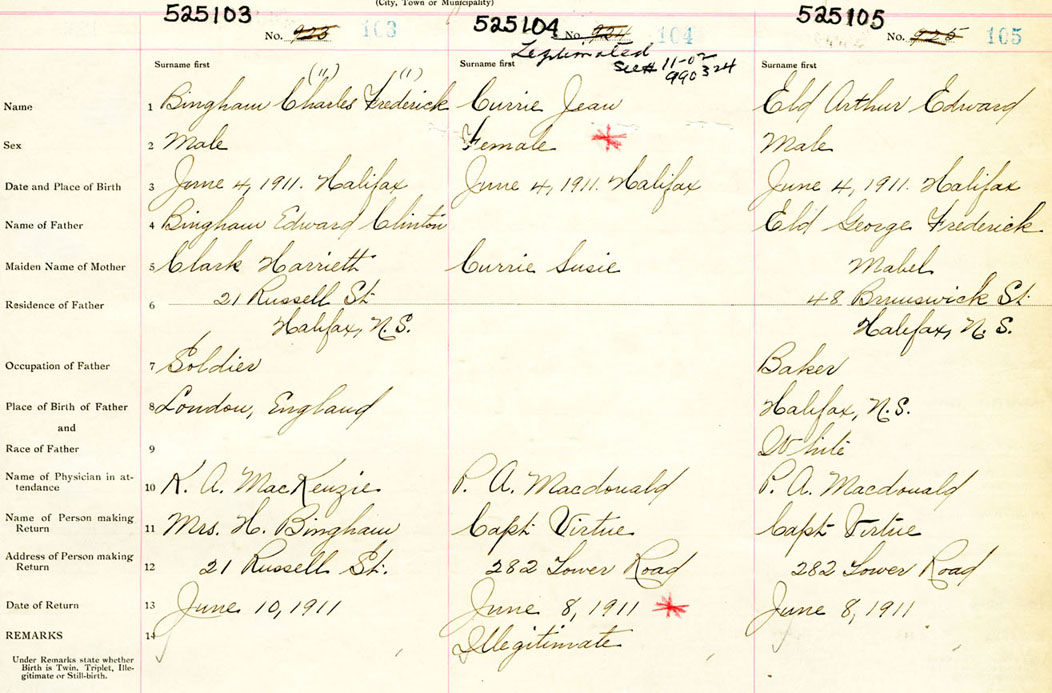 (City, Town or Municipality)
525103 525104 525105
No. 923 103 No. 924 104 No. 925 105
Legitimated
See# 11-02
990324
Surname first Surname first Surname first
(11) (1)
Name 1 Bingham Charles Frederick Currie Jean Eld Arthur Edward
Sex 2 Male Female Male
Date and Place of Birth 3 June 4, 1911. Halifax June 4, 1911. Halifax June 4, 1911. Halifax
Name of Father 4 Bingham Edward Clinton Eld George Frederick
Maiden Name of Mother 5 Clark Harriett Currie Susie Mabel
Residence of Father 6 21 Russell St. 48 Brunswick St.
Halifax, N.S. Halifax, N.S.
Occupation of Father 7 Soldier Baker
Place of Birth of Father 8 London, England Halifax, N.S.
and
Race of Father 9 White
Name of Physician in at-
tendance 10 K. A. MacKenzie P. A. Macdonald P. A. Macdonald
Name of Person making
Return 11 Mrs. H. Bingham Capt Virtue Capt Virtue
Address of Person making
Return 12 21 Russell St. 282 Tower Road 282 Tower Road
Date of Return 13 June 10, 1911 June 8, 1911 June 8, 1911
REMARKS 14 Illegitimate
Under Remarks state whether
Birth is Twin, Triplet, Ille-
gitimate or Still-birth.